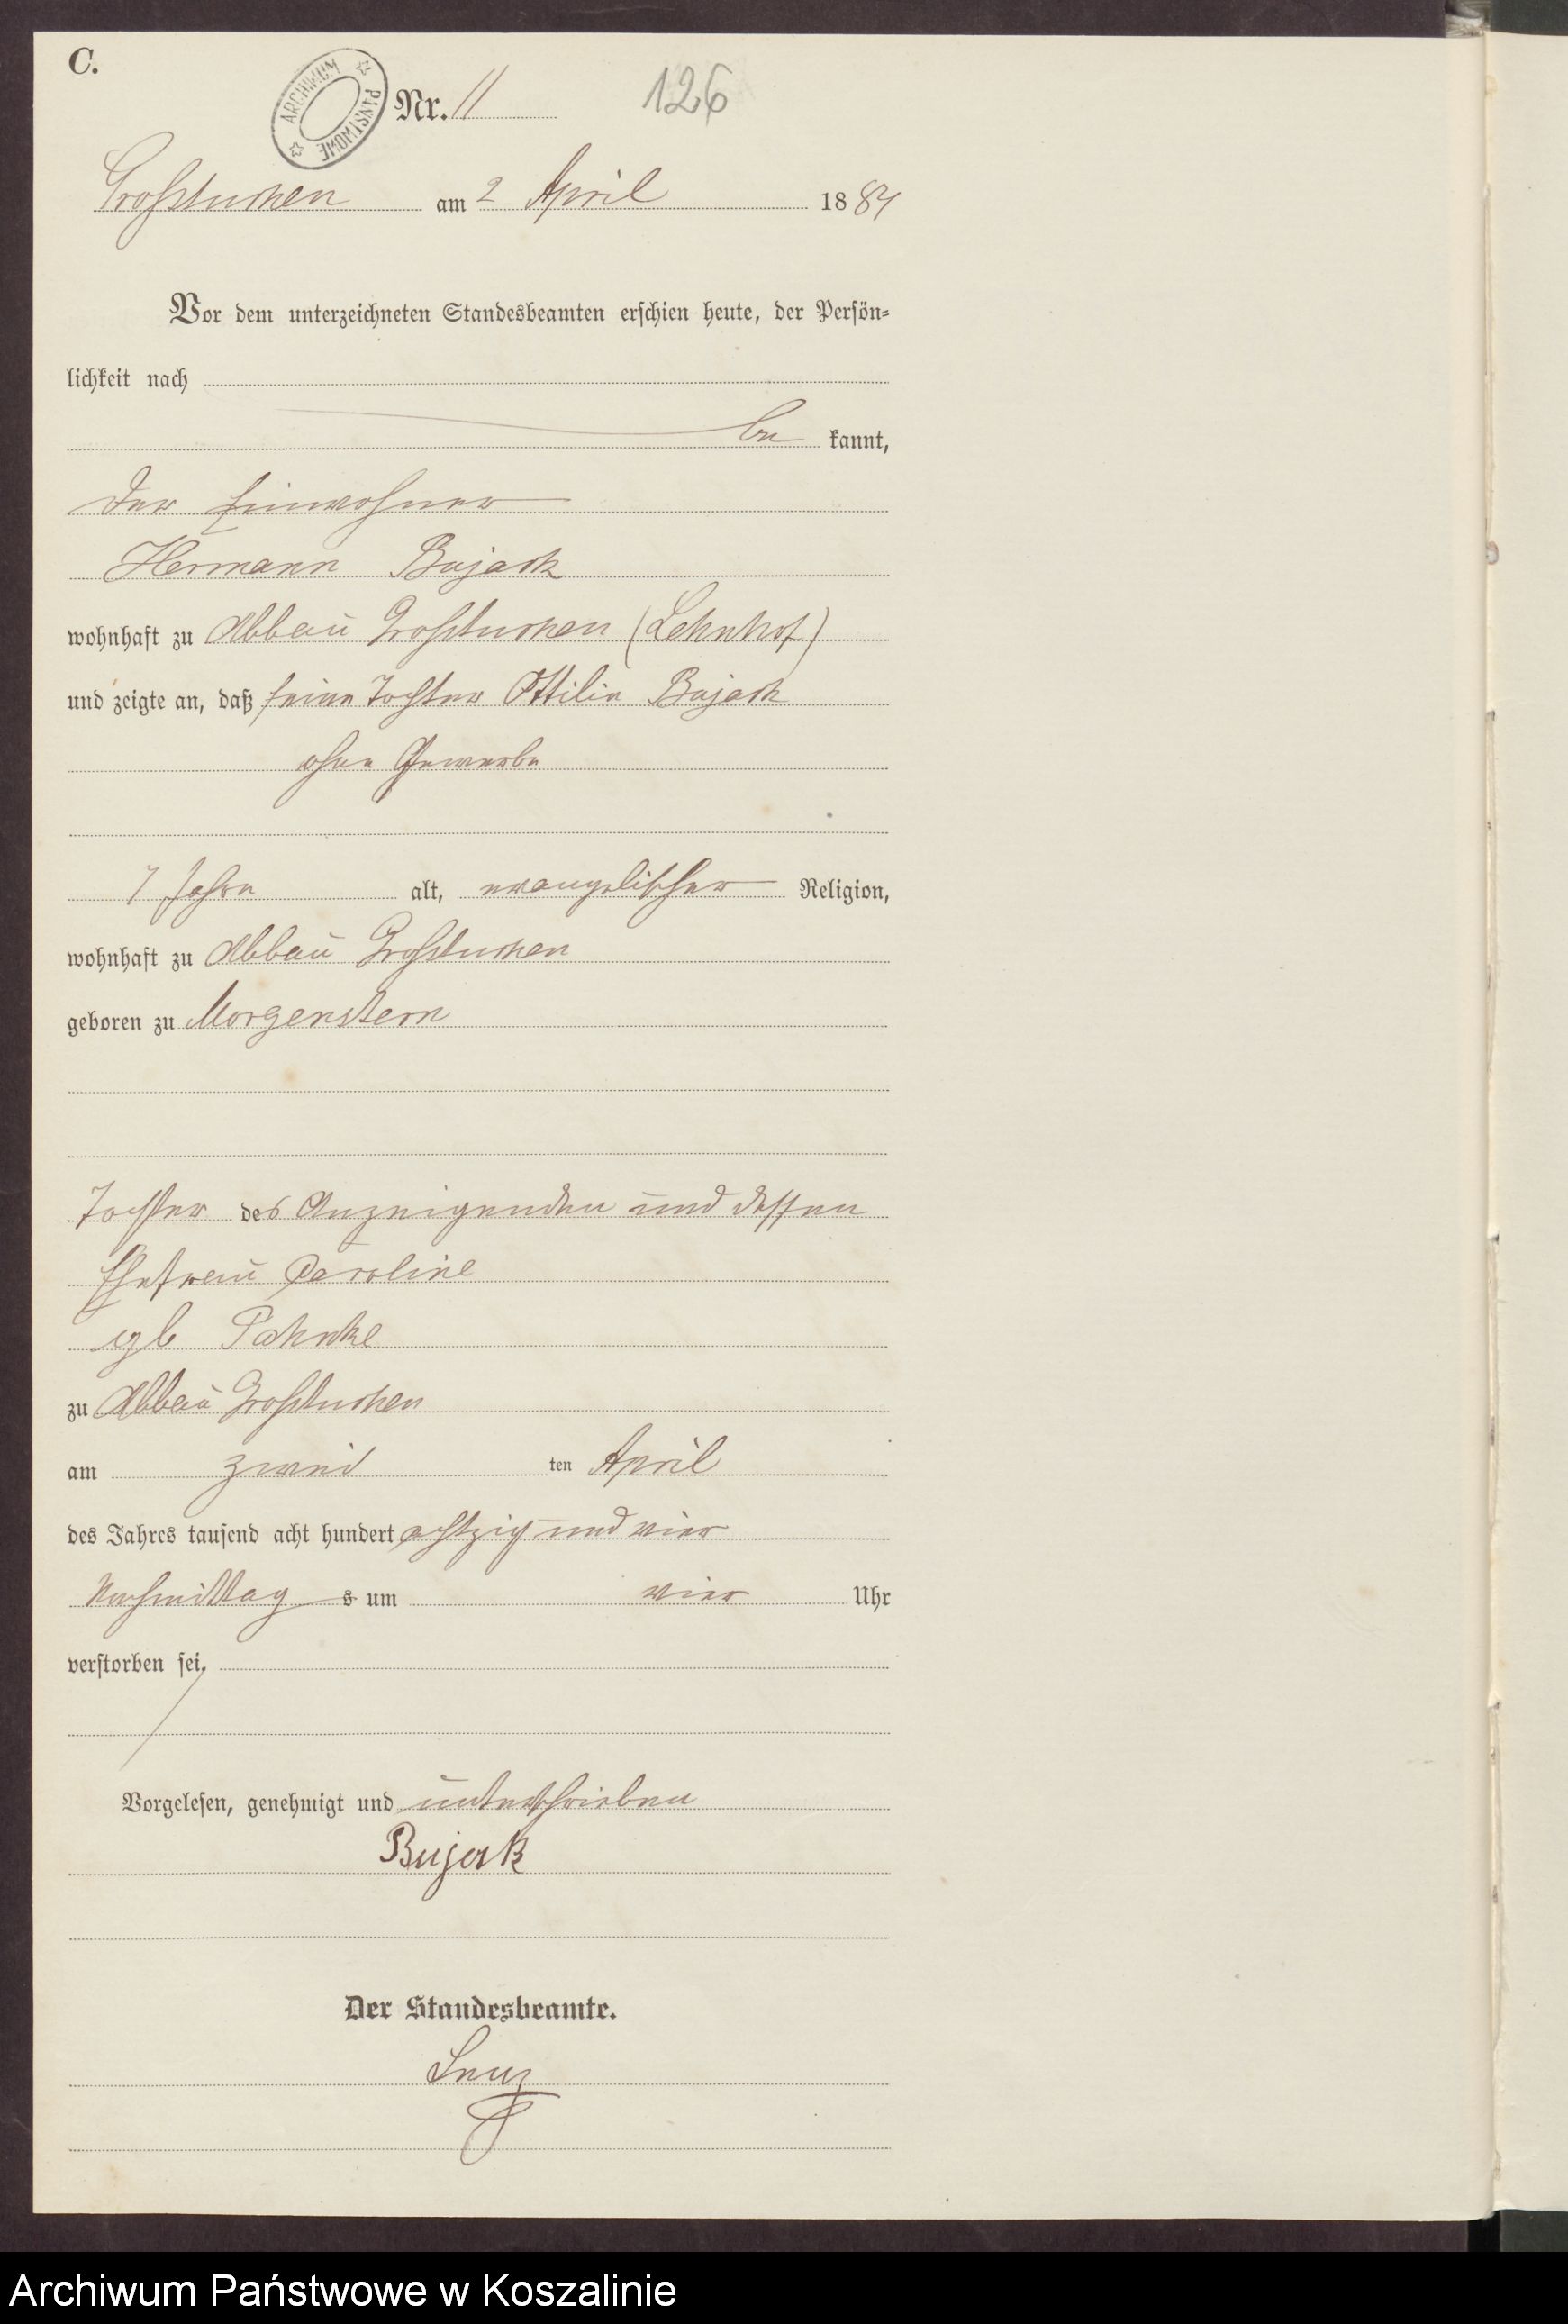 C.
ARCHIWUM PAŃSTWOWE
Nr. 11
126
Großtuchen am 2 April 1884
Vor dem unterzeichneten Standesbeamten erschien heute, der Persön-
lichkeit nach
be kannt,
der Einwohner
Hermann Bujack
wohnhaft zu Abbau Großtuchen (Lehnhof)
und zeigte an, daß seine Tochter Ottilie Bujack
ohne Gewerbe
7 Jahre alt, evangelischer Religion,
wohnhaft zu Abbau Großtuchen
geboren zu Morgenstern
Tochter des Anzeigenden und dessen
Ehefrau Caroline
geb Pahnke
zu Abbau Großtuchen
am zwei ten April
des Jahres tausend acht hundert achtzig und vier
Nachmittag s um vier Uhr
verstorben sei.
Vorgelesen, genehmigt und unterschrieben
Bujack
Der Standesbeamte.
Lenz
Archiwum Państwowe w Koszalinie